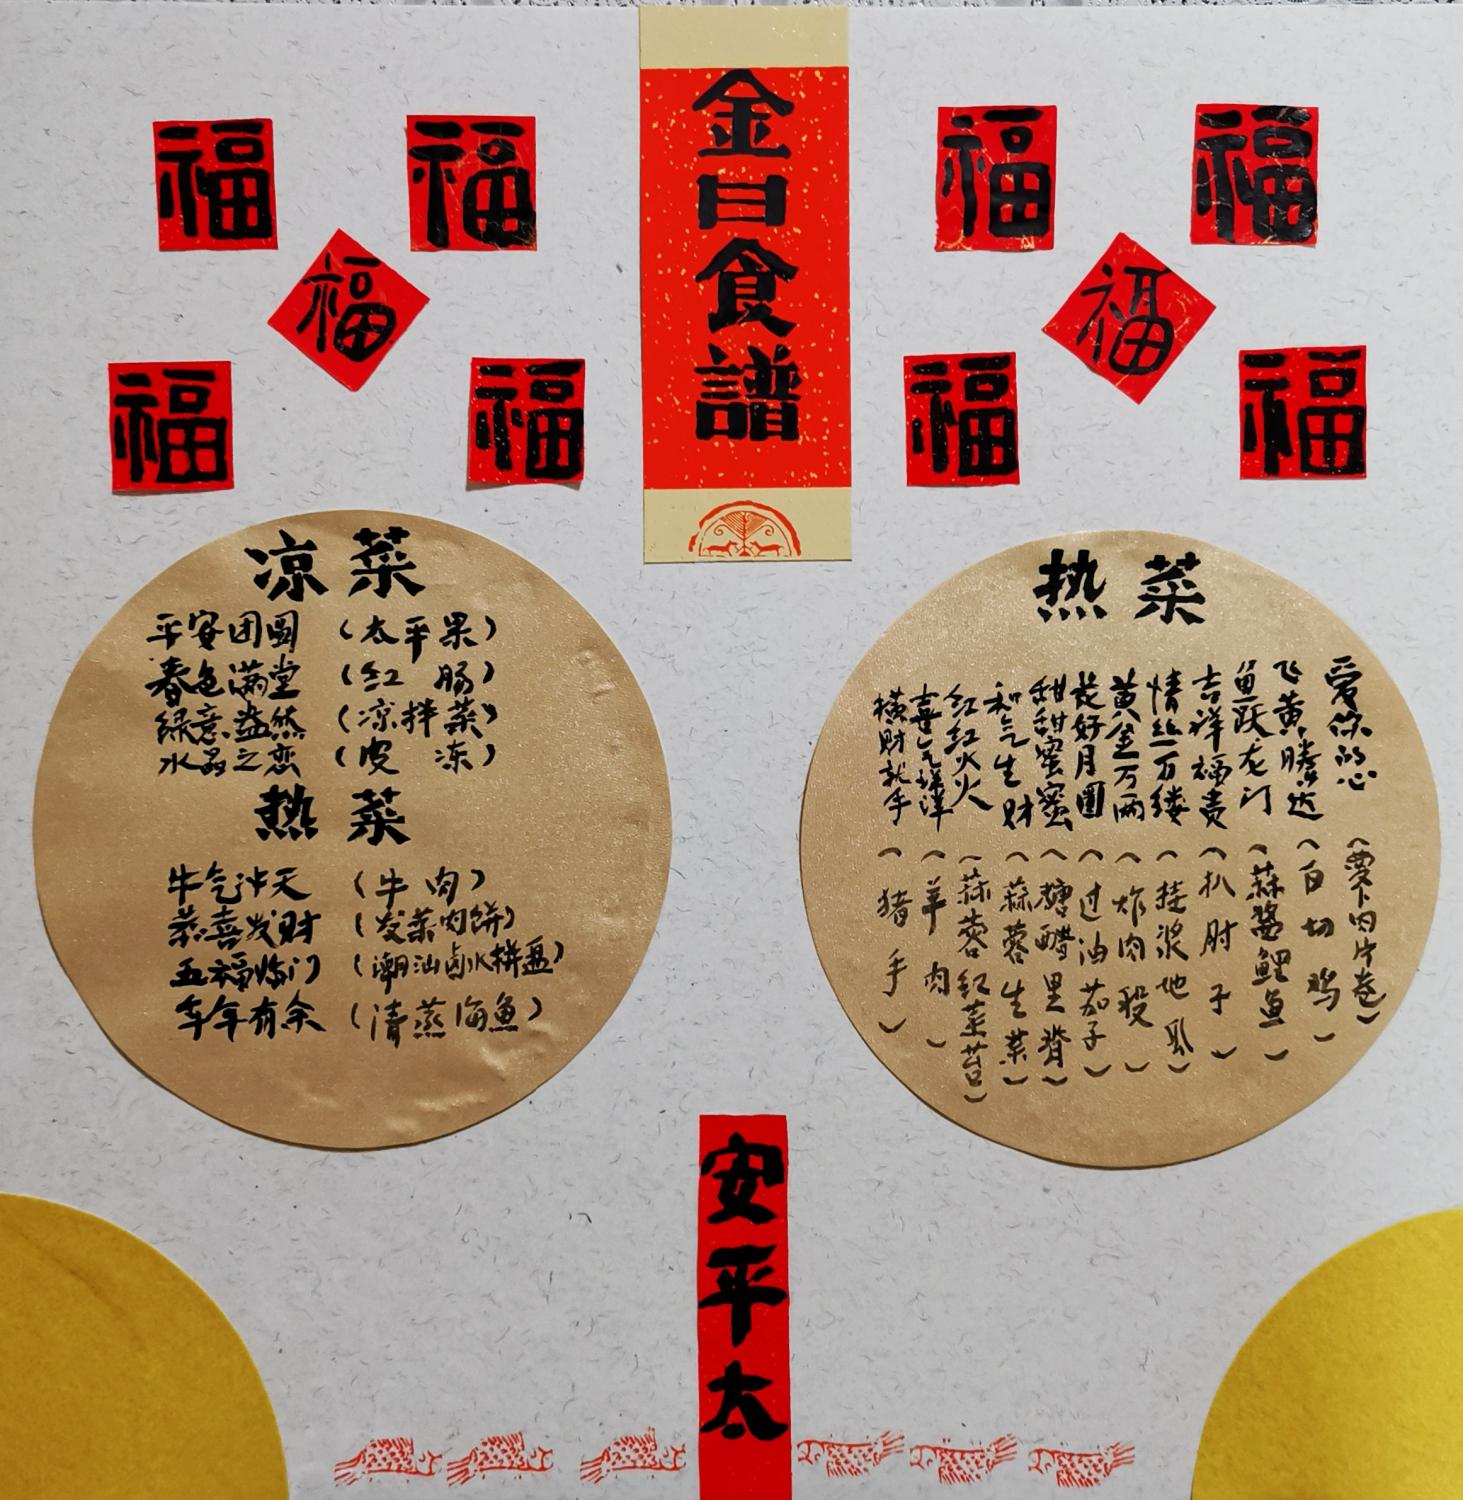 金日食譜
福
福
福
福
福
福
福
福
福
福
凉菜
平安团圆（太平果）
春色满堂（红肠）
绿意盎然（凉拌菜）
水晶之恋（皮冻）
热菜
牛气冲天（牛肉）
恭喜发财（发菜肉饼）
五福临门（潮汕卤水拼盘）
年年有余（清蒸海鱼）
热菜
爱你的心（卜肉片卷）
飞黄腾达（白切鸡）
鱼跃龙门（蒜酱鲤鱼）
吉祥福贵（扒肘子）
情丝万缕（挂浆地瓜）
黄金万两（炸肉段）
花好月圆（过油茄子）
甜甜蜜蜜（糖醋里脊）
和气生财（蒜蓉生菜）
红红火火（蒜蓉红菜苔）
喜气洋洋（羊肉）
横财就手（猪手）
安平太